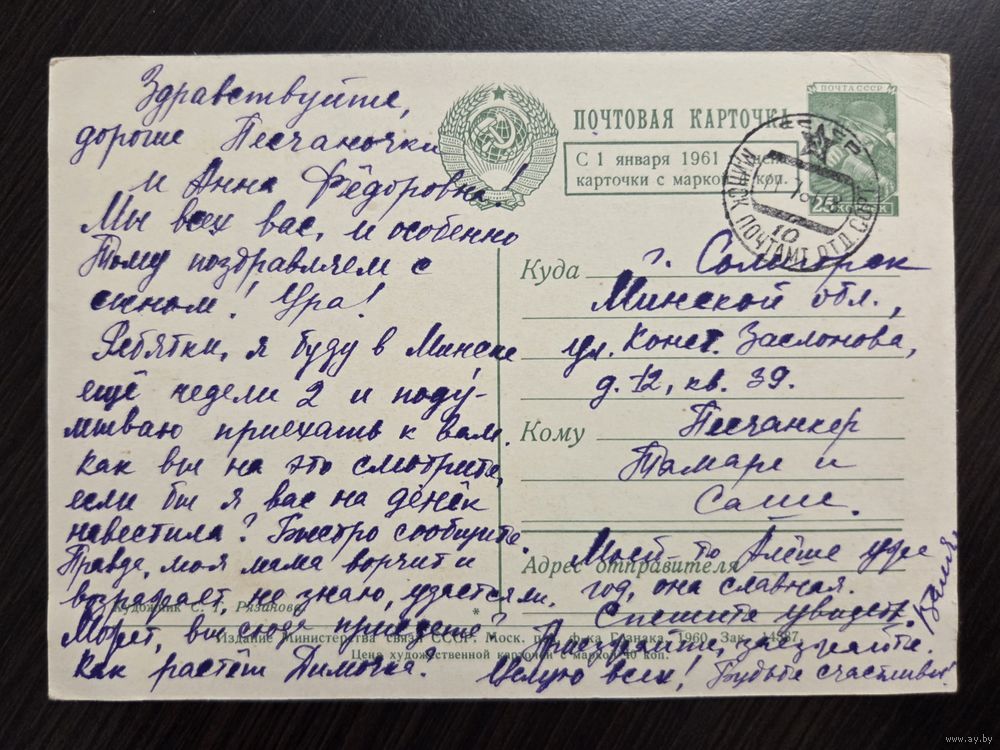 Здравствуйте,
дорогие Песчаночки
и Анна Фёдоровна!
Мы всех вас, и особенно
Тому поздравляем с
сыном! Ура!
Ребятки, я буду в Минске
ещё недели 2 и поду-
мываю приехать к вам.
Как вы на это смотрите,
если бы я вас на денёк
навестила? Быстро сообщите.
Правда, моя мама ворчит и
возражает, не знаю, удастся ли.
Может, вы сюда приедете?
Как растёт Димочка?
ПОЧТОВАЯ КАРТОЧКА
С 1 января 1961
карточки с маркой коп.
ПОЧТА СССР
МИНСК ПОЧТАМТ ОТД. СВЯЗ
10
Куда г. Солигорск
Минской обл.,
ул. Конст. Заслонова,
д. 12, кв. 39.
Кому Песчанкер
Тамаре и
Саше.
Адрес отправителя
Моей то Алёше уже
год, она славная.
Спешите увидеть.
Приезжайте, заезжайте.
Целую всех! Будьте счастливы!
Ваша
Художник С. Г. Рязанова
Издание Министерства связи СССР. Моск. печ. ф-ка Гознака. 1960. Зак. 14987
Цена художественной карточки с маркой 40 коп.
www.ay.by